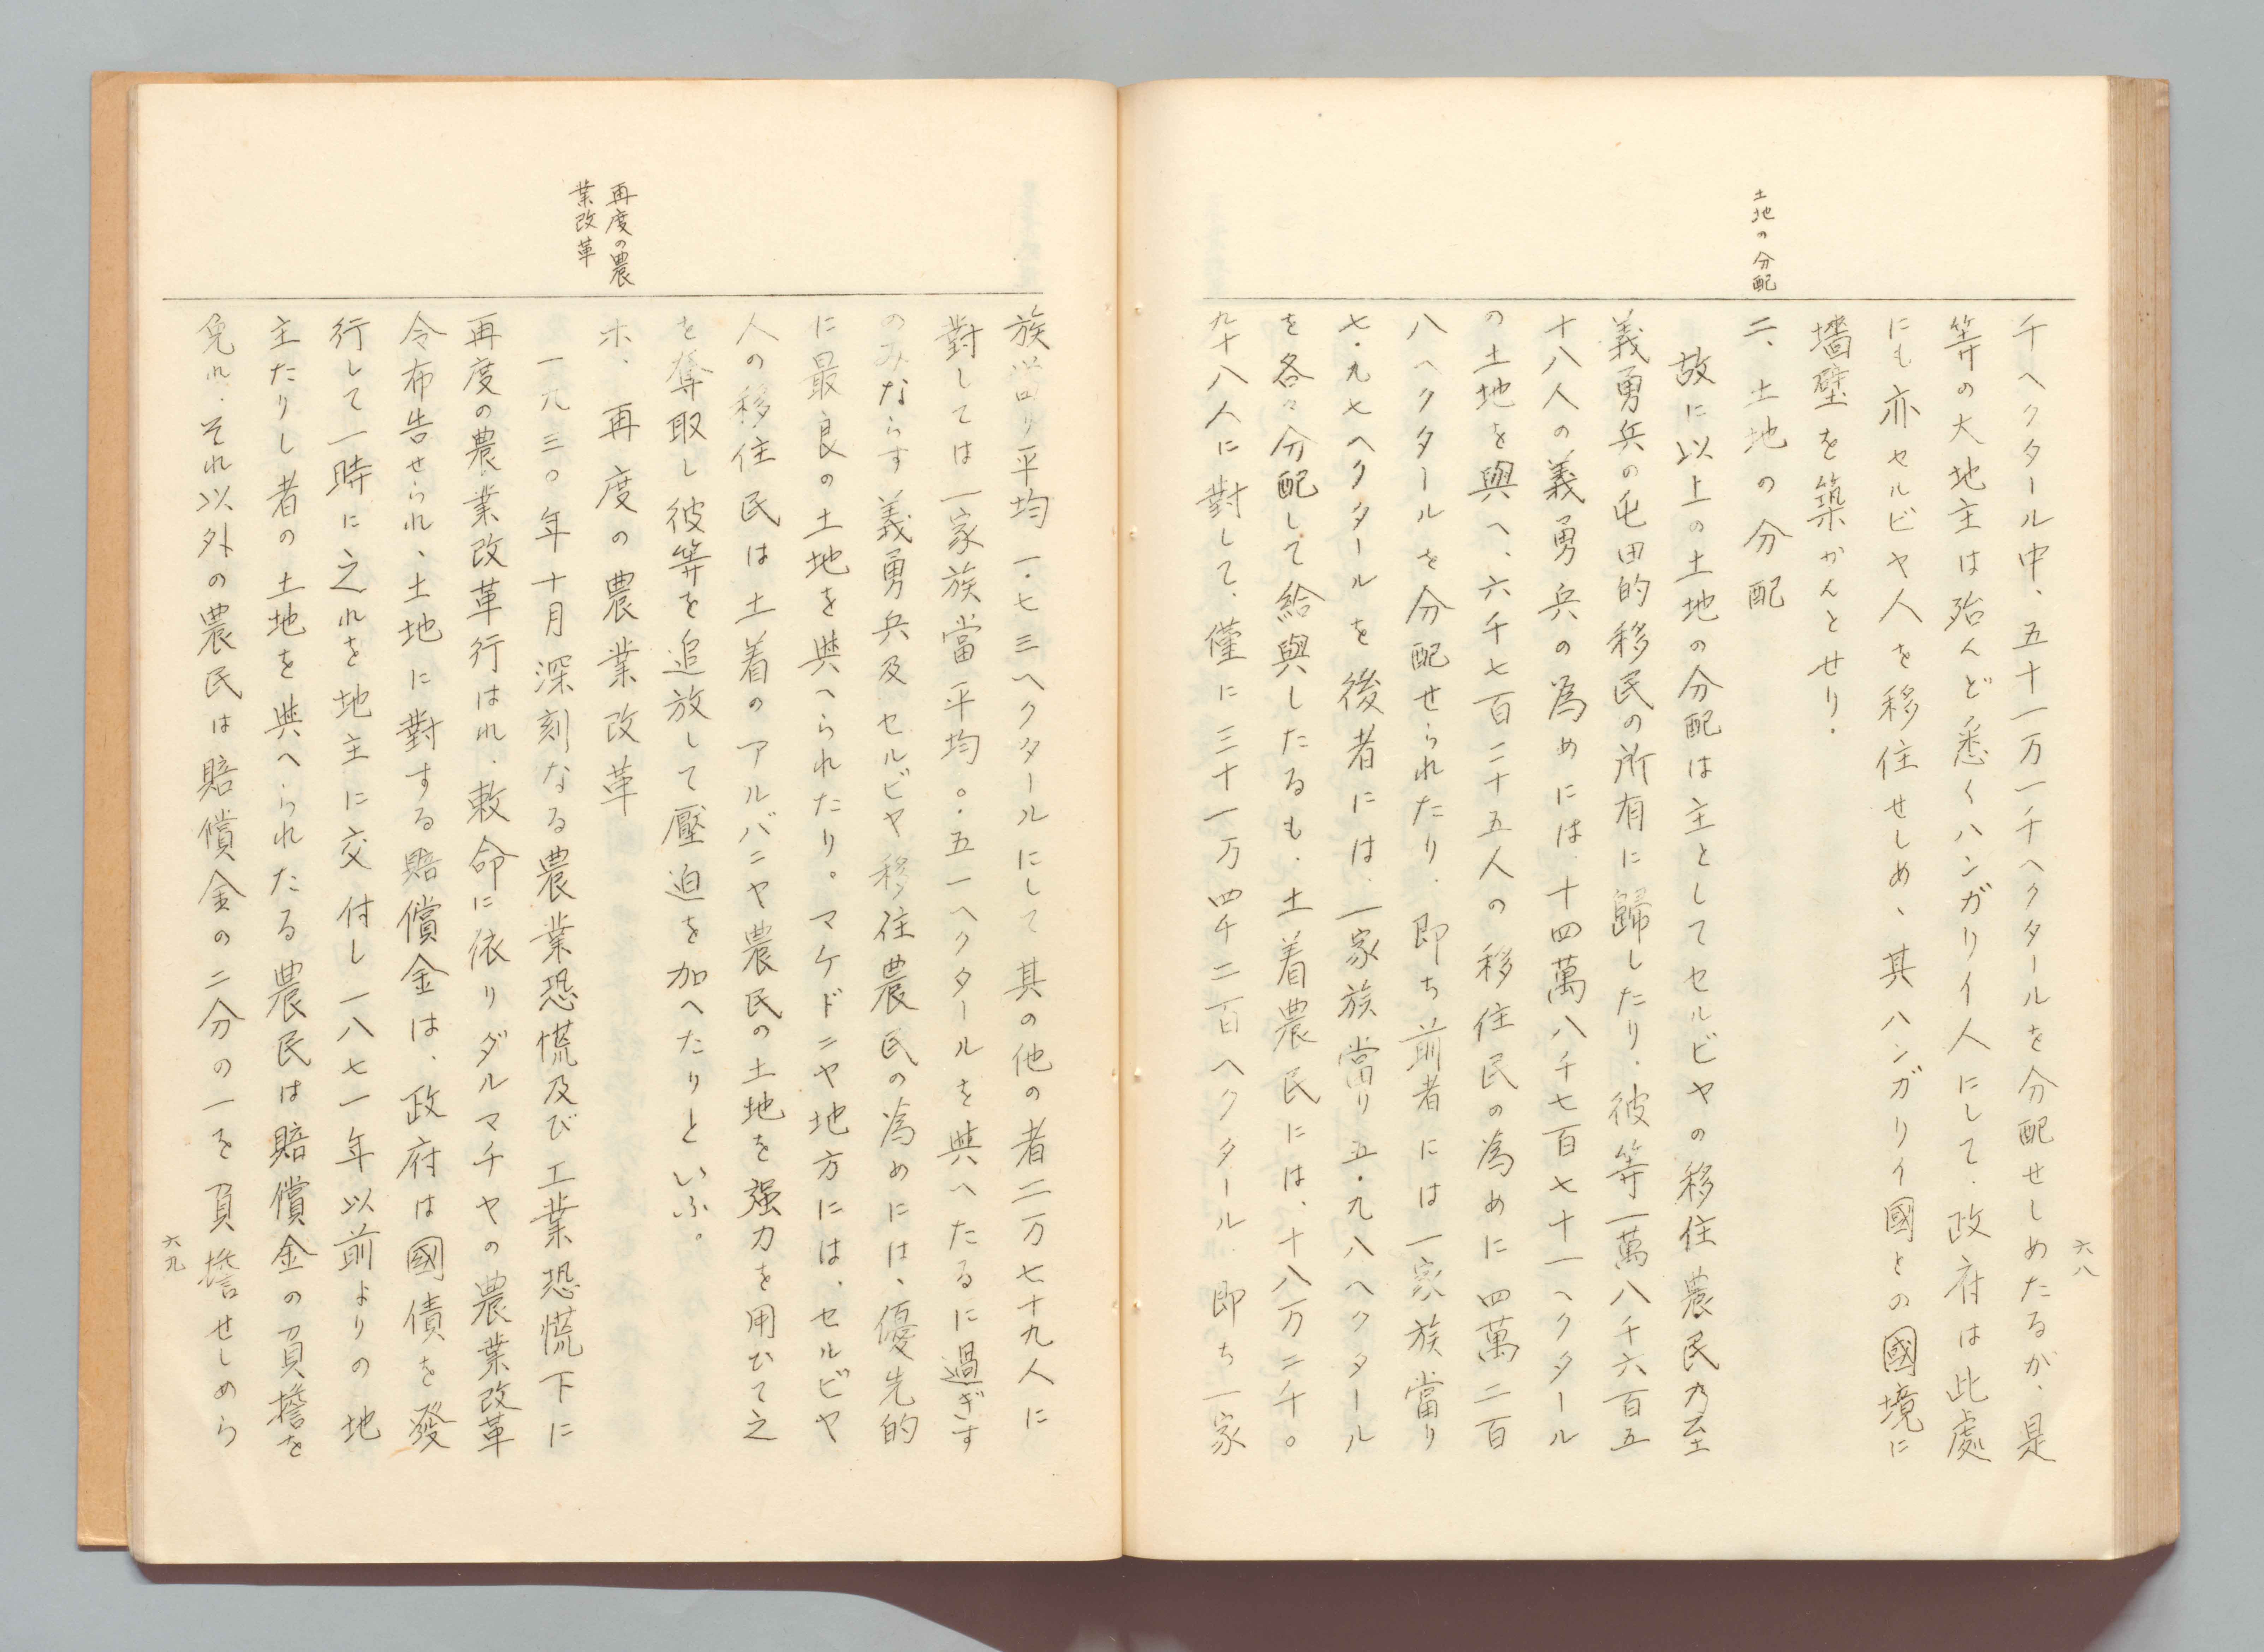 六八
土地の分配
千ヘクタール中、五十一万一千ヘクタールを分配せしめたるが、是
等の大地主は殆んど悉くハンガリイ人にして、政府は此處
にも亦セルビヤ人を移住せしめ、其ハンガリイ國との國境に
墻壁を築かんとせり。
ニ、土地の分配
故に以上の土地の分配は主としてセルビヤの移住農民乃至
義勇兵の屯田的移民の所有に歸したり。彼等一萬八千六百五
十八人の義勇兵の為めには、十四萬八千七百七十一ヘクタール
の土地を與へ、六千七百二十五人の移住民の為めに四萬二百
八ヘクタールを分配せられたり、即ち前者には一家族當り
七・九七ヘクタールを後者には、一家族當り五・九八ヘクタール
を各々分配して給與したるも、土着農民には、十八万二千。
九十八人に對して、僅に三十一万四千二百ヘクタール、即ち一家
再度の農
業改革
族當り平均一・七三ヘクタールにして其の他の者二万七十九人に
對しては一家族當平均〇・五一ヘクタールを與へたるに過ぎす
のみならす義勇兵及セルビヤ移住農民の為めには、優先的
に最良の土地を與へられたり。マケドニヤ地方には、セルビヤ
人の移住民は土着のアルバニヤ農民の土地を强力を用ひて之
を奪取し彼等を追放して壓迫を加へたりといふ。
ホ、再度の農業改革
一九三〇年十月深刻なる農業恐慌及び工業恐慌下に
再度の農業改革行はれ、敕命に依りダルマチヤの農業改革
令布告せられ、土地に對する賠償金は、政府は國債を發
行して一時に之れを地主に交付し一八七一年以前よりの地
主たりし者の土地を與へられたる農民は賠償金の負擔を
免れ、それ以外の農民は賠償金の二分の一を負擔せしめら
六九